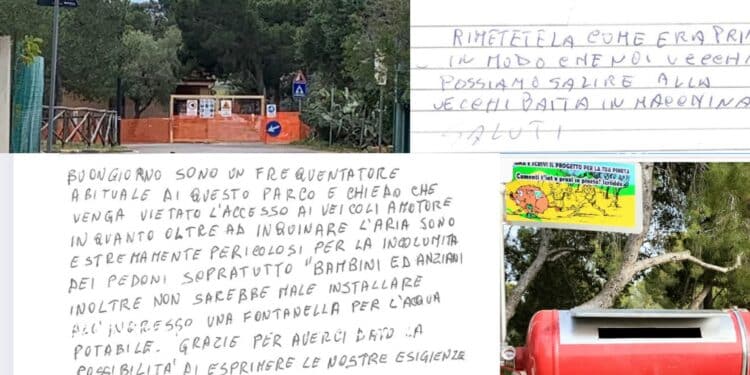 RIMETETELA COME ERA PRI
IN MODO CHE NOI VECCHI
POSSIAMO SALIRE ALLA
VECCHI BAITA IN MACCHINA
SALUTI
BUONGIORNO SONO UN FREQUENTATORE
ABITUALE DI QUESTO PARCO E CHIEDO CHE
VENGA VIETATO L'ACCESSO AI VEICOLI AMOTORE
IN QUANTO OLTRE AD INQUINARE L'ARIA SONO
ESTREMAMENTE PERICOLOSI PER LA INCOLUMITA
DEI PEDONI SOPRATUTTO "BAMBINI ED ANZIANI
INOLTRE NON SAREBBE MALE INSTALLARE
ALL'INGRESSO UNA FONTANELLA PER L'ACQUA
POTABILE. GRAZIE PER AVERCI DATO LA
POSSIBILITA' DI ESPRIMERE LE NOSTRE ESIGIENZE
E SCRIVI IL PROGETTO PER LA TUA PINETA